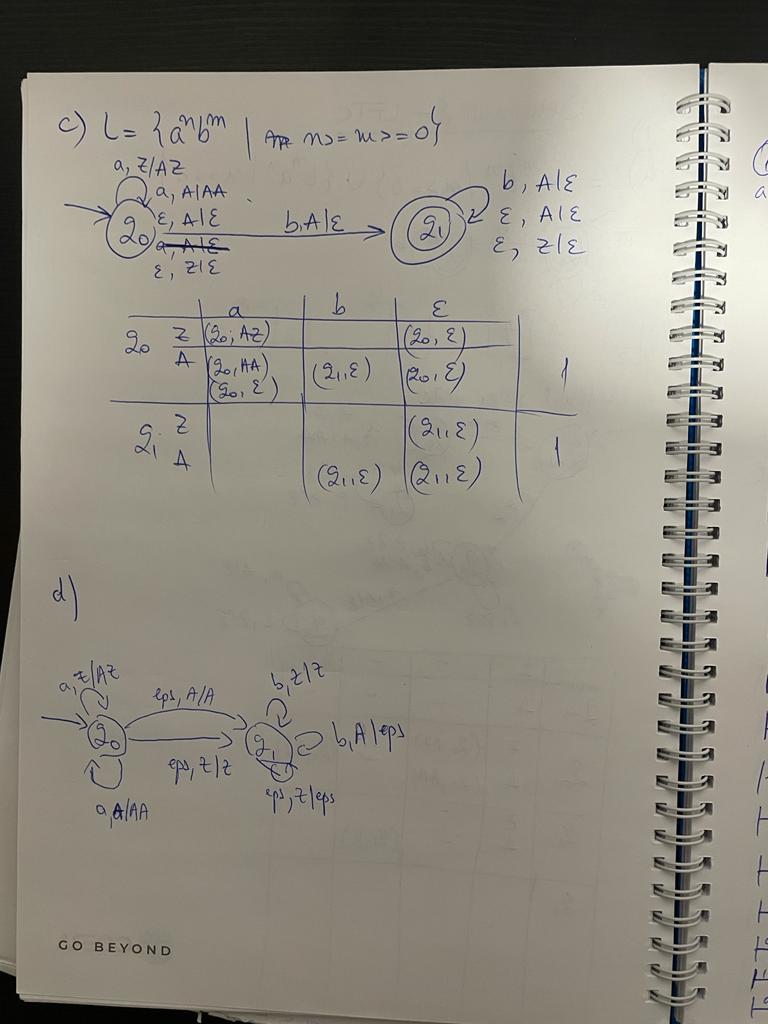 c) L = {aⁿbᵐ | n>=m>=0}
a, Z/AZ
a, A|AA
ε, A|ε
a, A|ε
ε, Z|ε
q₀
b,A|ε
q₁
b, A|ε
ε, A|ε
ε, Z|ε
a b ε
q₀ Z (q₀, AZ) (q₀, ε)
A (q₀, AA) (q₁, ε) (q₀, ε) 1
(q₀, ε)
q₁ Z (q₁, ε) 1
A (q₁, ε) (q₁, ε)
d)
a, Z/AZ
eps, A/A
b, Z/Z
q₀
q₁
b, A/eps
eps, Z/Z
eps, Z/eps
a, A/AA
GO BEYOND